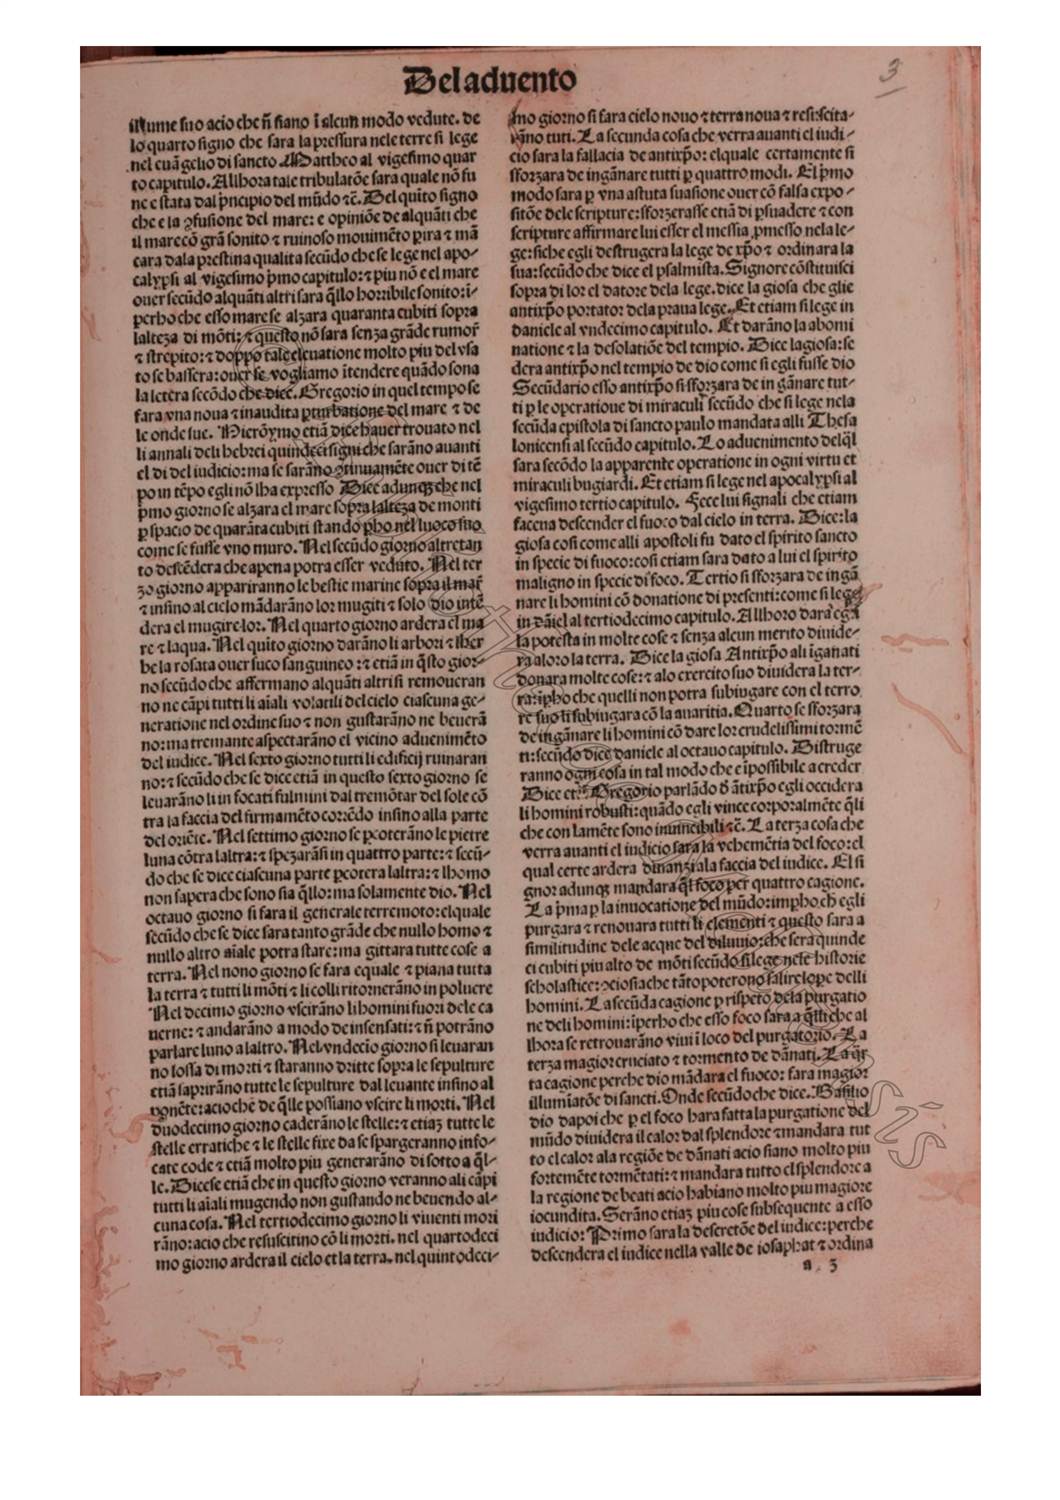 Del aduento
3
illume suo acio che ñ siano ĩ alcun modo vedute. de
lo quarto signo che sara la pressura nele terre si lege
nel euãgelio di sancto Mattheo al vigesimo quar
to capitulo. Allhora tale tribulatõe sara quale nõ fu
ne e stata dal p̃ncipio del mũdo ⁊c̃. Del quĩto signo
che e la ꝯfusione del mare: e opiniõe de alquãti che
il mare cõ grã sonito ⁊ ruinoso mouimẽto pira ⁊ mã
cara dala prestina qualita secũdo che se lege nel apo-
calypsi al vigesimo p̃mo capitulo: ⁊ piu nõ e el mare
ouer secũdo alquãti altri sara q̃llo horribile sonito: ĩ-
perho che esso mare se alzara quaranta cubiti sopra
lalteza di mõti: ⁊ questo nõ sara senza grãde rumor̃
⁊ strepito: ⁊ doppo tale eleuatione molto piu del vsa
to se bassera: ouer se vogliamo ĩtendere quãdo sona
la letera secõdo che dice. Gregorio in quel tempo se
fara vna noua ⁊ inaudita ꝑturbatione del mare ⁊ de
le onde sue. Hieroỹmo etiã dice hauer trouato nel
li annali deli hebrei quindeci signi che sarãno auanti
el di del iudicio: ma se sarãno ꝯtinuamẽte ouer di tẽ
po in tẽpo egli nõ lha expresso Dice adunqꝫ che nel
p̃mo giorno se alzara el mare sopra lalteza de monti
ꝑ spacio de quarãta cubiti stando ꝑho nel luoco suo
come se fusse vno muro. Nel secũdo giorno altretan
to descẽdera che apena potra esser veduto. Nel ter
zo giorno appariranno le bestie marine sopra il mar̃
⁊ insino al cielo mãdarãno lor mugiti ⁊ solo dio intẽ
dera el mugire lor. Nel quarto giorno ardera el ma
re ⁊ laqua. Nel quito giorno darãno li arbori ⁊ lher
be la rosata ouer suco sanguineo: ⁊ etiã in q̃sto gior-
no secũdo che affermano alquãti altri si remoueran
no ne cãpi tutti li aiali volatili del cielo ciascuna ge-
neratione nel ordine suo ⁊ non gustarãno ne beuerã
no: ma tremante aspectarãno el vicino aduenimẽto
del iudice. Nel sexto giorno tutti li edificij ruinaran
no: ⁊ secũdo che se dice etiã in questo sexto giorno se
leuarãno li in focati fulmini dal tremõtar del sole cõ
tra la faccia del firmamẽto corrẽdo insino alla parte
del oriẽte. Nel settimo giorno se pcoterãno le pietre
luna cõtra laltra: ⁊ spezarãsi in quattro parte: ⁊ secũ-
do che se dice ciascuna parte pcotera laltra: ⁊ lhomo
non sapera che sono sia q̃llo: ma solamente dio. Nel
octauo giorno si fara il generale terremoto: elquale
secũdo che se dice sara tanto grãde che nullo homo ⁊
nullo altro aĩale potra stare: ma gittara tutte cose a
terra. Nel nono giorno se fara equale ⁊ piana tutta
la terra ⁊ tutti li mõti ⁊ li colli ritornerãno in poluere
Nel decimo giorno vscirãno li homini fuori dele ca
uerne: ⁊ andarãno a modo de insensati: ⁊ ñ potrãno
parlare luno a laltro. Nel vndecĩo giorno si leuaran
no lossa di morti ⁊ staranno dritte sopra le sepulture
etiã saprirãno tutte le sepulture dal leuante insino al
ponẽte: acioche de q̃lle possiano vscire li morti. Nel
duodecimo giorno caderãno le stelle: ⁊ etiaꝫ tutte le
stelle erratiche ⁊ le stelle fixe da se spargeranno info-
cate code ⁊ etiã molto piu generarãno di sotto a q̃l-
le. Dicese etiã che in questo giorno veranno ali cãpi
tutti li aiali mugendo non gustando ne beuendo al-
cuna cosa. Nel tertiodecimo giorno li viuenti mori
rãno: acio che resuscitino cõ li morti. nel quartodeci
mo giorno ardera il cielo et la terra. nel quintodeci-
mo giorno si fara cielo nouo ⁊ terra noua ⁊ resuscita-
rãno tuti. La secunda cosa che verra auanti el iudi-
cio sara la fallacia de antixp̃o: elquale certamente si
sforzara de ingãnare tutti ꝑ quattro modi. El p̃mo
modo sara ꝑ vna astuta suasione ouer cõ falsa expo-
sitõe dele scripture: sforzerasse etiã di ꝑsuadere ⁊ con
scripture affirmare lui esser el messia ꝓmesso nela le-
ge: siche egli destrugera la lege de xp̃o ⁊ ordinara la
sua: secũdo che dice el psalmista. Signore cõstituisci
sopra di lor el datore dela lege. dice la glosa che glie
antixp̃o portator dela praua lege. Et etiam si lege in
daniele al vndecimo capitulo. Et darãno la abomi
natione ⁊ la desolatiõe del tempio. Dice la glosa: se
dera antixp̃o nel tempio de dio come si egli fusse dio
Secũdario esso antixp̃o si sforzara de in gãnare tut-
ti ꝑ le operatioue di miraculi secũdo che si lege nela
secũda epistola di sancto paulo mandata alli Thesa
lonicensi al secũdo capitulo. Lo aduenimento delq̃l
sara secõdo la apparente operatione in ogni virtu et
miraculi bugiardi. Et etiam si lege nel apocalypsi al
vigesimo tertio capitulo. Fece lui signali che etiam
faceua descender el fuoco dal cielo in terra. Dice: la
glosa cosi come alli apostoli fu dato el spirito sancto
in specie di fuoco: cosi etiam sara dato a lui el spirito
maligno in specie di foco. Tertio si sforzara de ingã
nare li homini cõ donatione di presenti: come si lege
in dãiel al tertiodecimo capitulo. Allhoro dara egli
la potesta in molte cose ⁊ senza alcun merito diuide-
ra aloro la terra. Dice la glosa Antixp̃o ali ĩganati
donara molte cose: ⁊ alo exercito suo diuidera la ter-
ra: ĩpho che quelli non potra subiugare con el terro
re suo li subiugara cõ la auaritia. Quarto se sforzara
de ingãnare li homini cõ dare lor crudelissimi tormẽ
ti: secũdo dice daniele al octauo capitulo. Distruge
ranno ogni cosa in tal modo che e ĩpossibile a creder
Dice et: Gregorio parlãdo ð ãtixp̃o egli occidera
li homini robusti: quãdo egli vince corporalmẽte q̃li
che con la mẽte sono inuincibili ⁊c̃. La terza cosa che
verra auanti el iudicio sara la vehemẽtia del foco: el
qual certe ardera dinanzi ala faccia del iudice. El si
gnor adunqꝫ mandara q̃l foco per quattro cagione.
La p̃ma ꝑ la inuocatione del mũdo: impho ch egli
purgara ⁊ renouara tutti li elementi ⁊ questo sara a
similitudine dele acque del diluuio: che sera quinde
ci cubiti piu alto de mõti secũdo si lege nele historie
scholastice: ꝯciosiache tãto poterono salire lope delli
homini. La secũda cagione ꝑ rispeto dela purgatio
ne deli homini: ĩperho che esso foco sara a q̃lli che al
lhora se retrouarãno viui ĩ loco del purgatorio. La
terza magior cruciato ⁊ tormento de dãnati. La q̃r
ta cagione perche dio mãdara el fuoco: fara magior
illumĩatõe di sancti. Onde secũdo che dice. Basilio
dio dapoi che ꝑ el foco hara fatta la purgatione del
mũdo diuidera il calor dal splendore ⁊ mandara tut
to el calor ala regiõe de dãnati acio siano molto piu
fortemẽte tormẽtati: ⁊ mandara tutto el splendore a
la regione de beati acio habiano molto piu magiore
iocundita. Serãno etiaꝫ piu cose subsequente a esso
iudicio: Primo sara la descretõe del iudice: perche
descendera el iudice nella valle de iosaphat ⁊ ordina
a 3